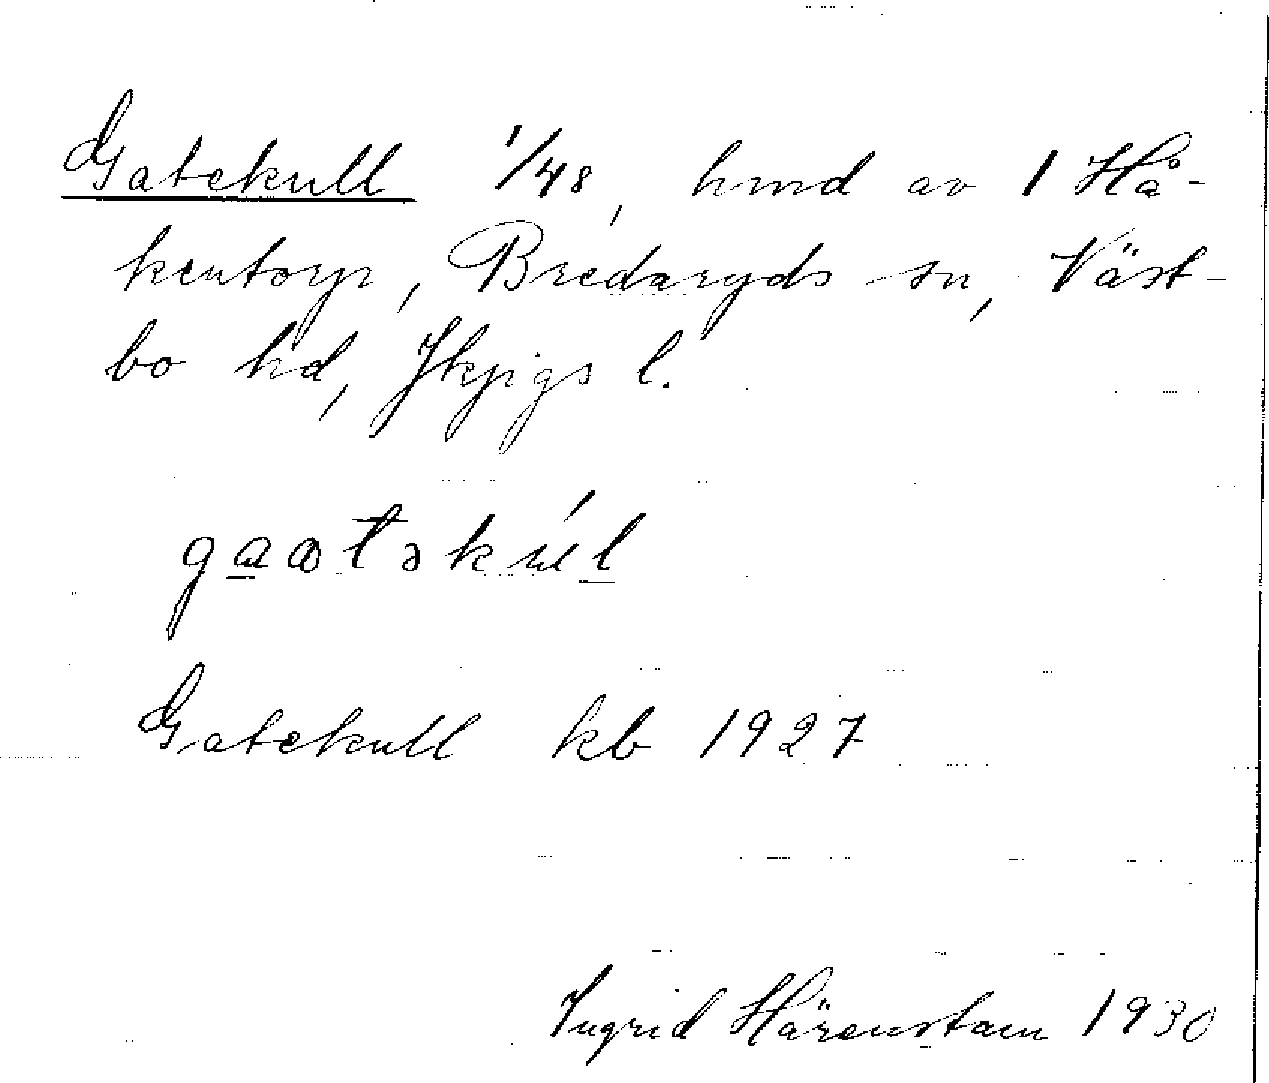 Gatekull 1/48, hmd av 1 Hå-
kentorp, Bredaryds sn, Väst-
bo hd, Jkpgs l.
gaatəkúl
Gatekull kb 1927
Ingrid Härenstam 1930